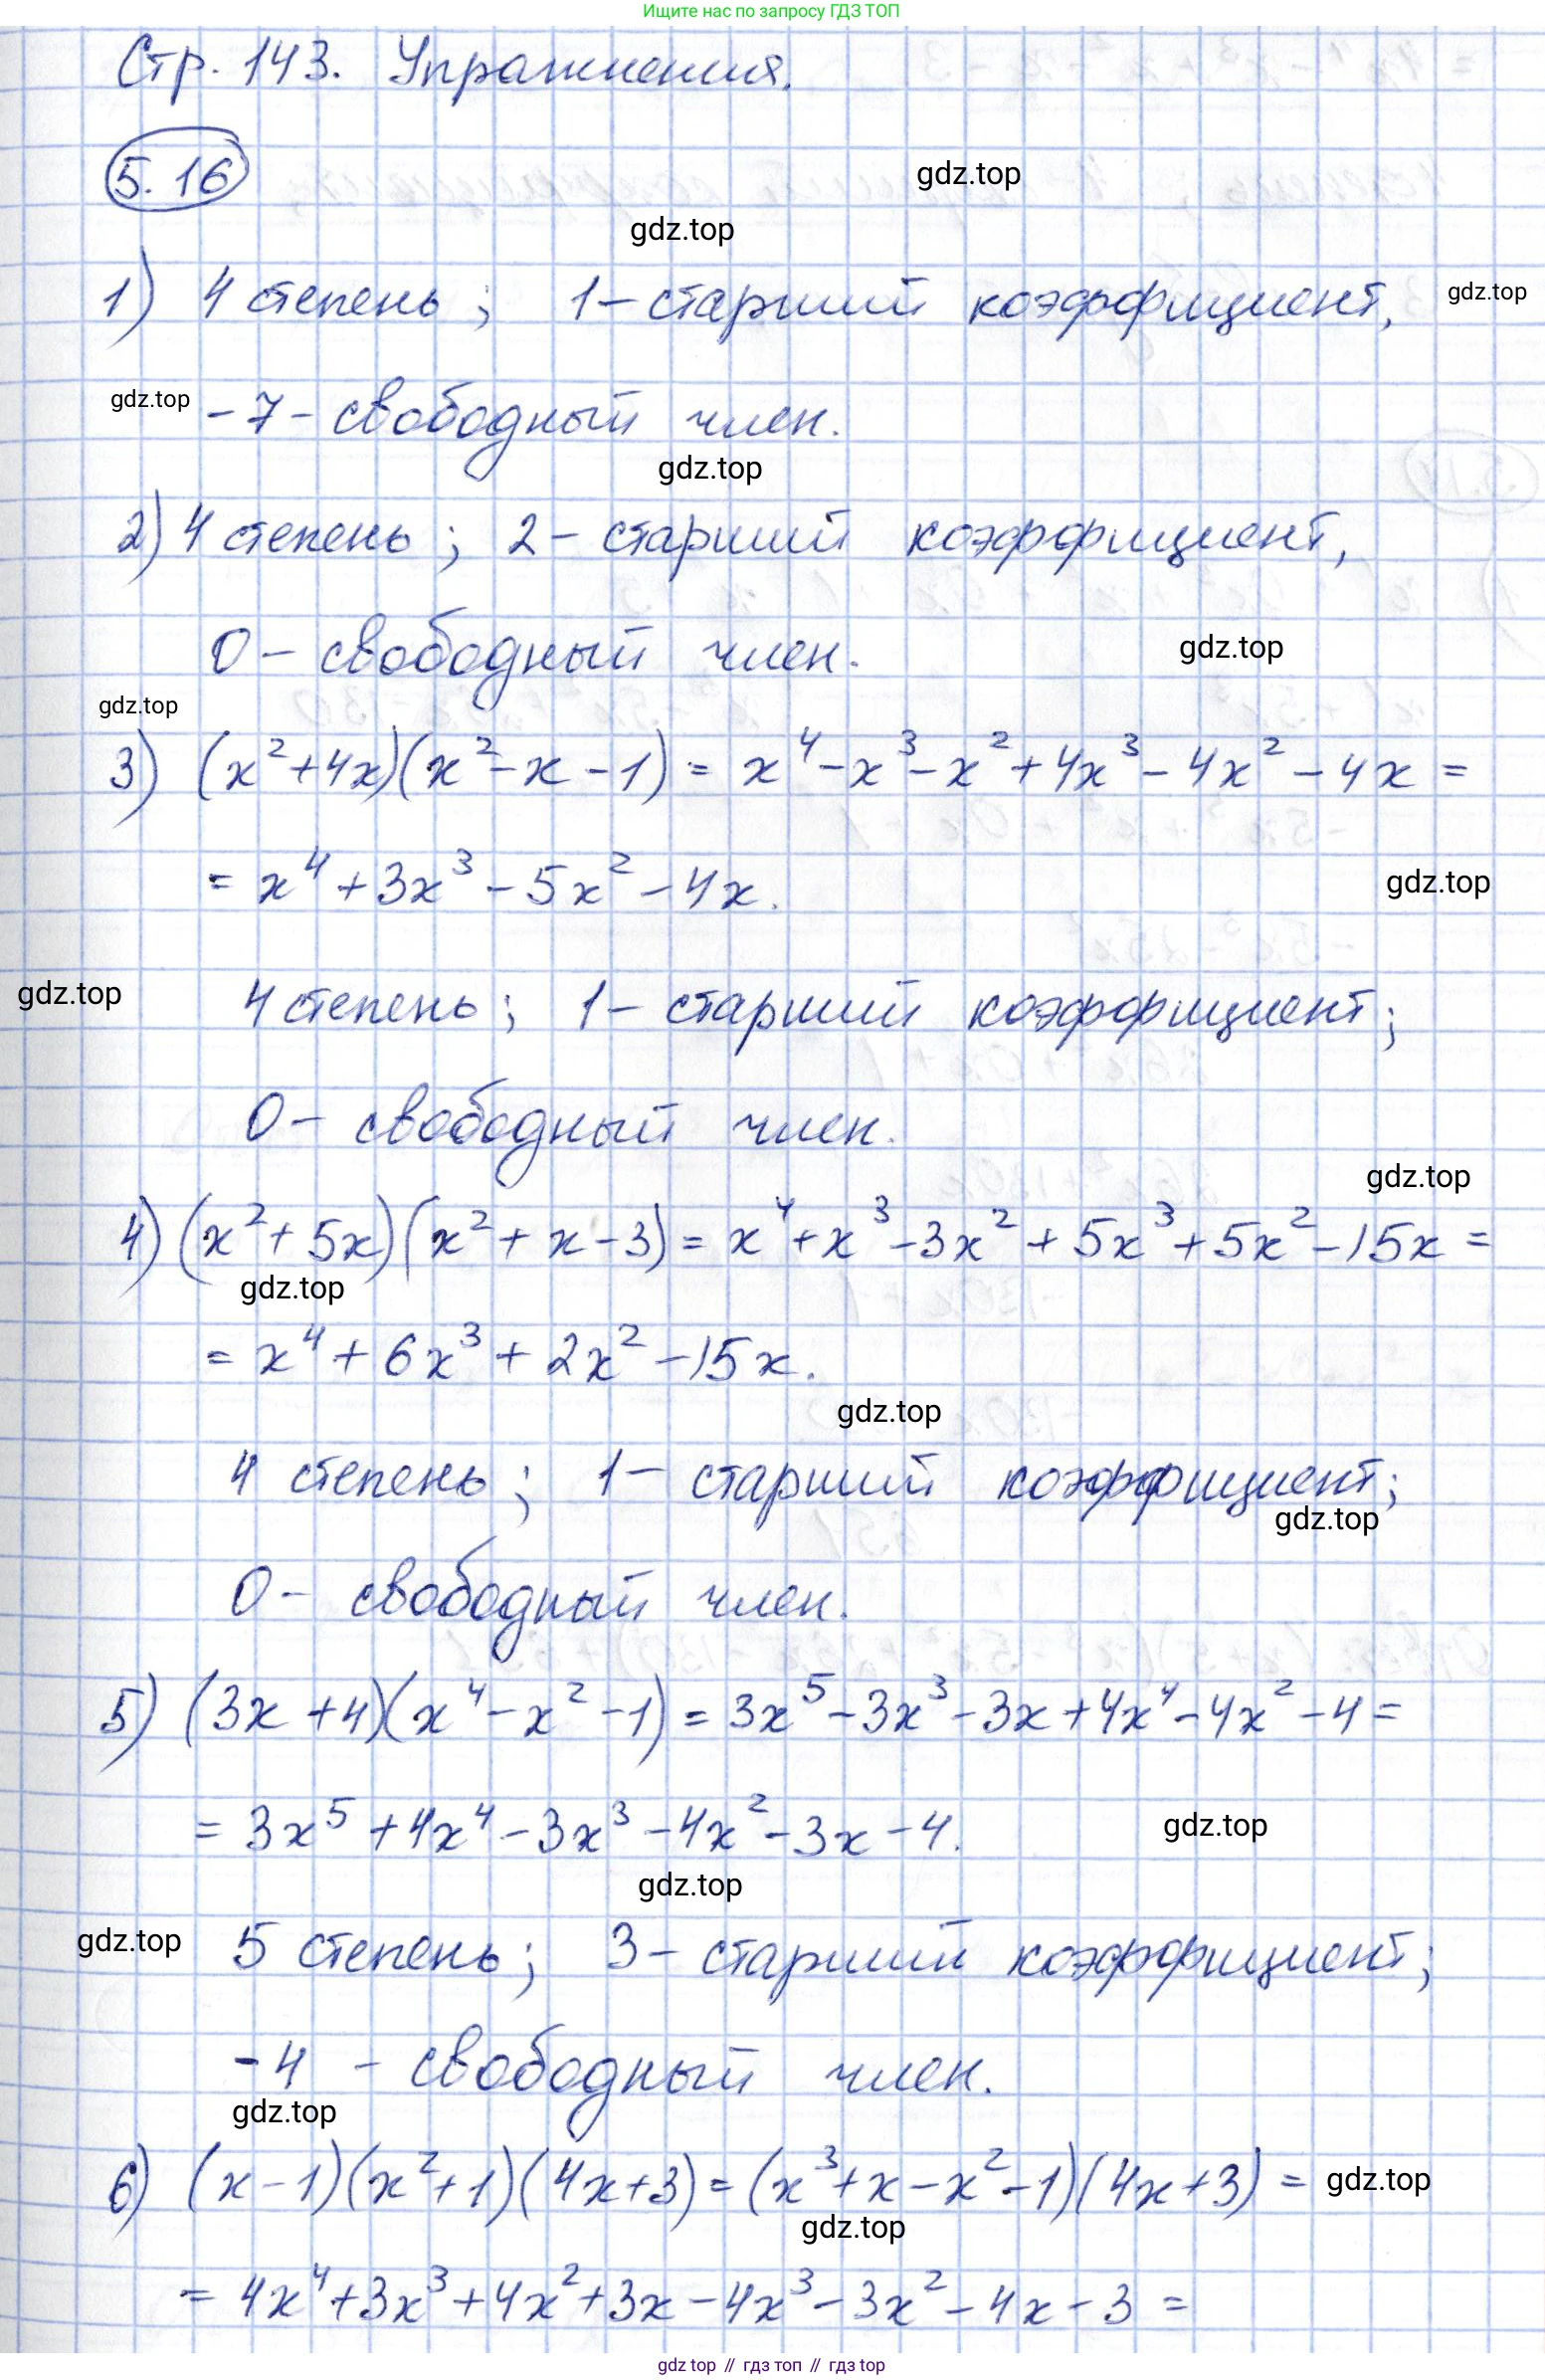 Ищите нас по запросу ГДЗ ТОП
Стр. 143. Упражнения.
5.16
gdz.top
gdz.top
1) 4 степень; 1 – старший коэффициент, gdz.top
gdz.top -7 - свободный член.
gdz.top
2) 4 степень; 2 – старший коэффициент,
0 – свободный член. gdz.top
gdz.top
3) (x²+4x)(x²-x-1) = x⁴-x³-x²+4x³-4x²-4x =
= x⁴+3x³-5x²-4x. gdz.top
gdz.top 4 степень; 1 – старший коэффициент;
0 – свободный член.
gdz.top
4) (x²+5x)(x²+x-3) = x⁴+x³-3x²+5x³+5x²-15x =
gdz.top
= x⁴+6x³+2x²-15x.
gdz.top
4 степень; 1 – старший коэффициент;
gdz.top
0 – свободный член.
5) (3x+4)(x⁴-x²-1) = 3x⁵-3x³-3x+4x⁴-4x²-4 =
= 3x⁵+4x⁴-3x³-4x²-3x-4. gdz.top
gdz.top
gdz.top 5 степень; 3 – старший коэффициент;
-4 - свободный член.
gdz.top
6) (x-1)(x²+1)(4x+3) = (x³+x-x²-1)(4x+3) = gdz.top
gdz.top
= 4x⁴+3x³+4x²+3x-4x³-3x²-4x-3 =
gdz top // гдз топ // гдз top